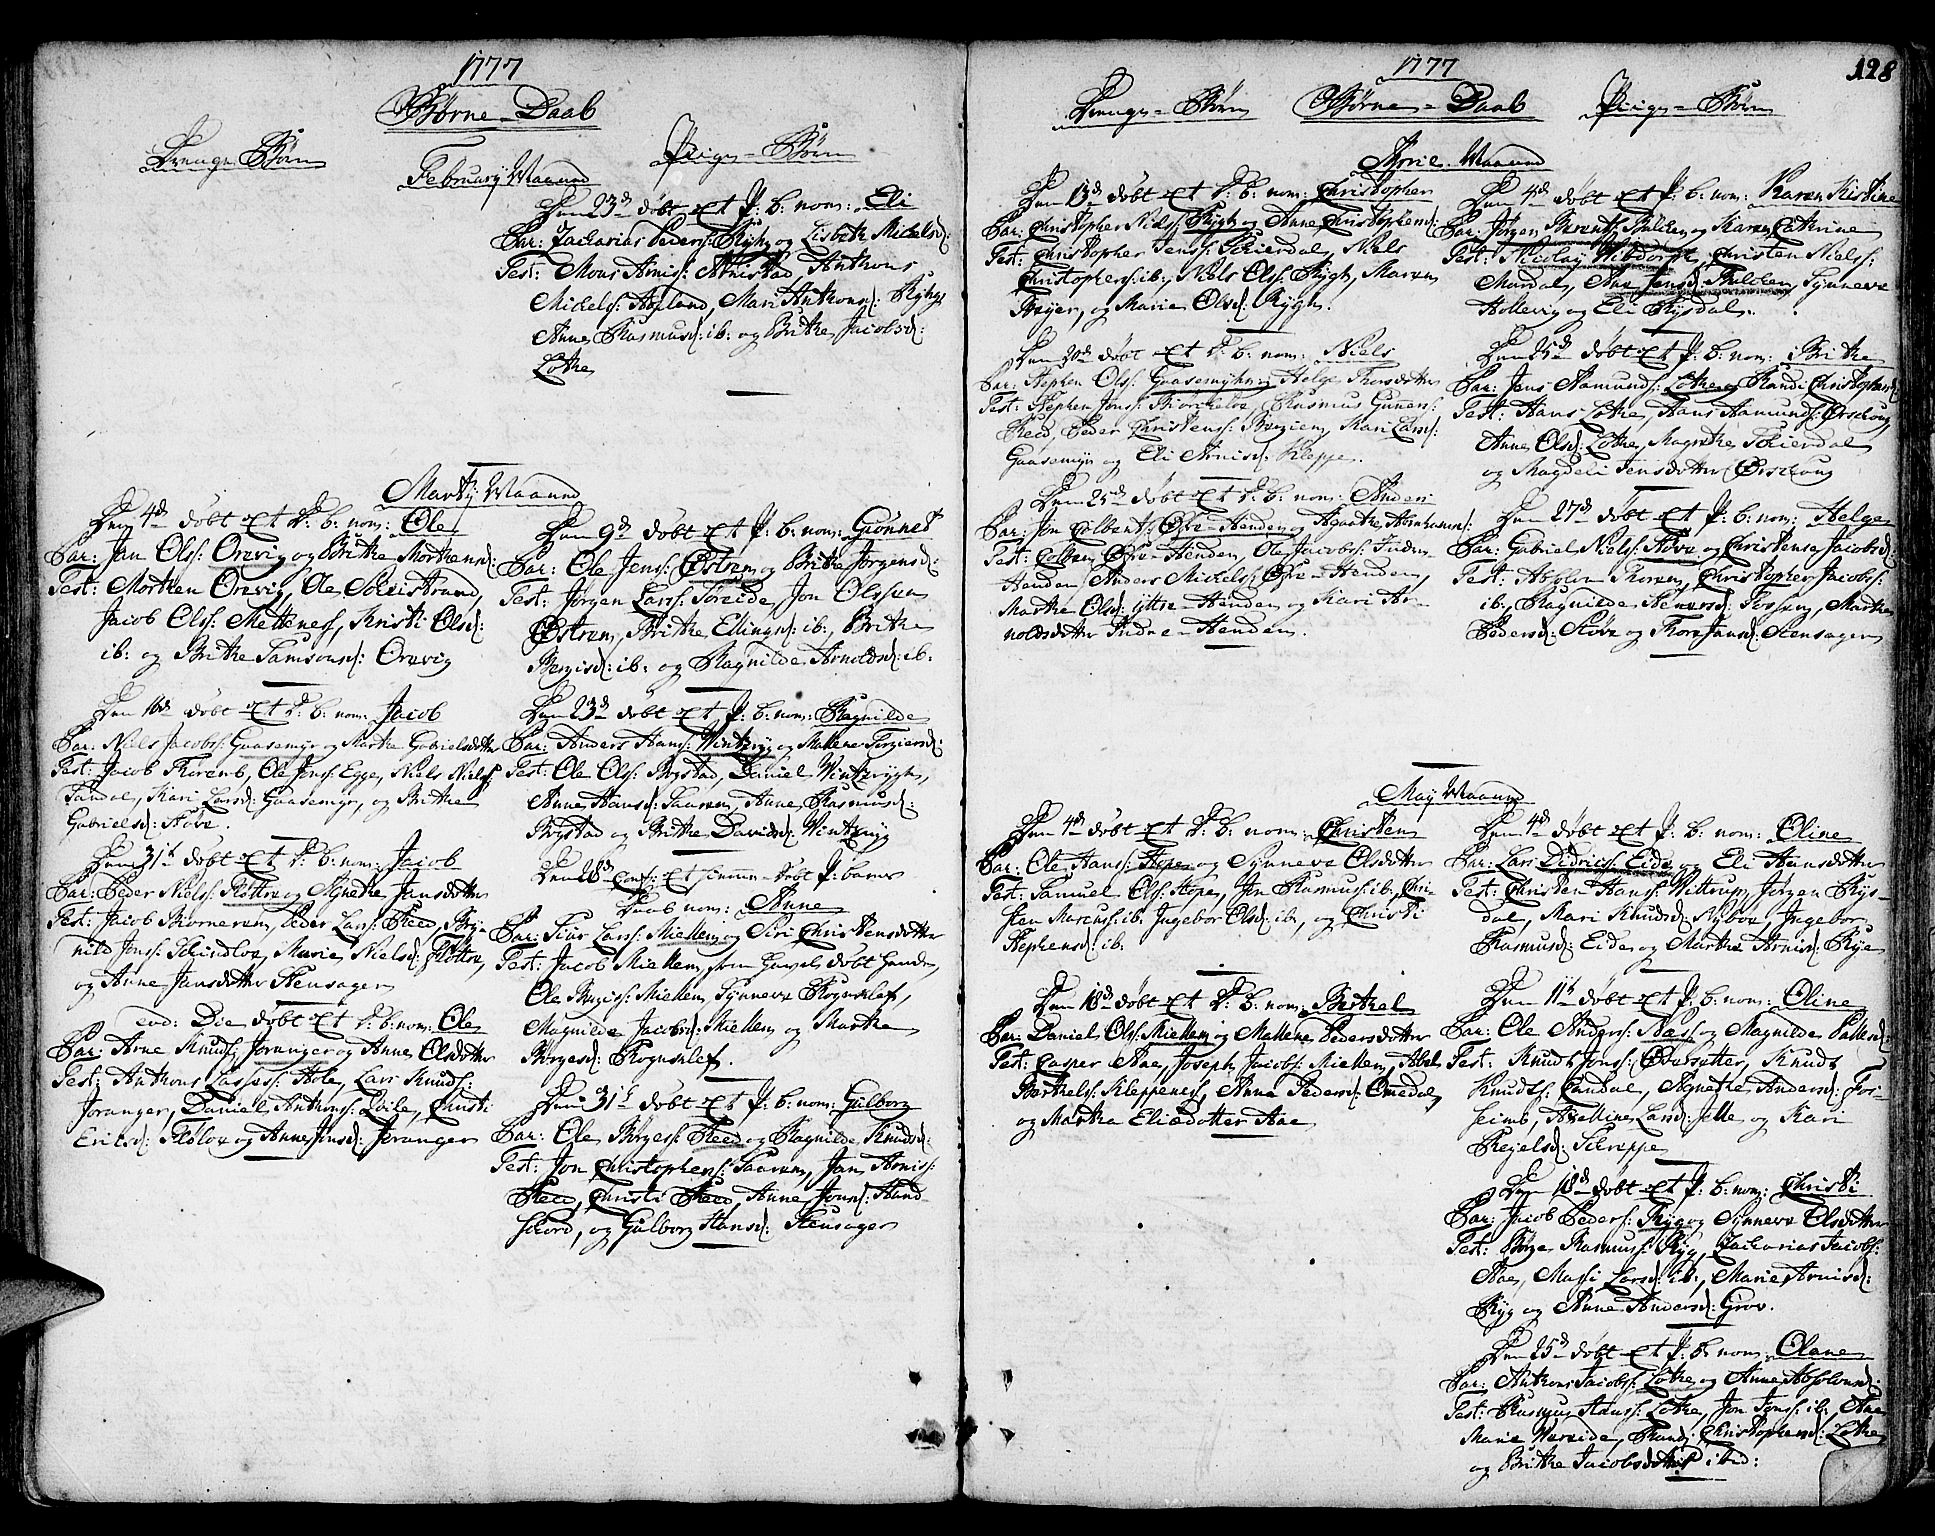 1777
Børne-Daab
Drenge-Børn
Pige-Børn
February Maaned
Den 23d døbt et P: b: nom: Eli
Par: Zacharias Peders: Rygh og Lisbeth Michelsd:
Test: Mons Arnis: Arnistad, Anthons
Michels: Aosland, Mari Anthonsd: Rygh,
Anne Rasmusd: ib: og Brithe Jacobsd:
Lothe
Martij Maaned
Den 4d døbt et D: b: nom: Ole
Par: Jan Ols: Orevig og Brithe Morthensd:
Test: Morthen Orevig, Ole Solvistrand,
Jacob Ols: Mettenes, Kristi Olsd:
ib: og Brithe Samsonsd: Orevig
Den 16d døbt et D: b: nom: Jacob
Par: Niels Jacobs: Gaasemyr og Marthe Gabrielsdatter
Test: Jacob Thoremb, Ole Jens: Egge, Niels Niels:
Tandal, Kari Larsd: Gaasemyr, og Brithe
Gabrielsd: Hove.
Den 31t døbt et D: b: nom: Jacob
Par: Peder Niels: Fløttre og Agnethe Jansdatter
Test: Jacob Biorneren, Peder Lars: Reed, Bry-
nild Jons: Skindloe, Marie Nielsd: Fløttre,
og Anne Jansdatter Stensager
eod: Die døbt et D: b: nom: Ole
Par: Arne Knuds: Joranger og Anne Olsdatter
Test: Anthons Lasses: Hole, Lars Knuds:
Joranger, Daniel Anthons: Loile, Christi
Ericsd: Føløe og Anne Jonsd: Joranger
Den 9d døbt et P: b: nom: Gønnet
Par: Ole Jens: Østrem og Brithe Jørgensd:
Test: Jørgen Lars: Søreide, Jon Olssen
Østrem, Brithe Ellingsd: ib:, Brithe
Bergisd: ib: og Ragnilde Arnoldsd: ib:
Den 23d døbt et P: b: nom: Ragnilde
Par: Anders Hans: Wintryg og Mallene Torgiersd:
Test: Ole Ols: Rygstad, Daniel Wintrygh,
Anne Hansd: Taaren, Anne Rasmusd:
Rygstad og Brithe Davidsd: Wintryg
Den 28d Conf: et hiemme-døbt P: barns
Daab nom: Anne
Par: Siur Lars: Miellem og Siri Christensdatter
Test: Jacob Miellem, som havde døbt hende,
Ole Bergis: Miellem, Synneve Rognklef,
Magnilde Jacobsd: Miellem og Marthe
Børgesd: Rognklef.
Den 31t døbt et P: b: nom: Gulborg
Par: Ole Børges: Reed og Ragnilde Knudsd:
Test: Jon Christophers: Taaren, Jan Arnis:
Reed, Christi Reed, Anne Jonsd: Hand-
skord, og Gulborg Hansd: Stensager
1777
128
Drenge-Børn
Børne-Daab
Pige-Børn
April Maaned
Den 13d døbt et D: b: nom: Christopher
Par: Christopher Niels: Rygh og Anne Christophersd:
Test: Christopher Jens: Skierdal, Niels
Christophers: ib:, Niels Ols: Rygh, Maren
Høyer, og Marie Olsd: Rygh.
Den 20d døbt et D: b: nom: Niels
Par: Stephen Ols: Gaasemyhr og Helge Thoresdatter
Test: Stephen Jons: Biørkeloe, Rasmus Gunners:
Reed, Peder Christens: Bergiem, Kari Larsd:
Gaasemyr og Eli Arnisd: Kleppe.
Den 25d døbt et D: b: nom: Anders
Par: Jon Colbent: Øvre-Henden og Agathe Abrahamsd:
Test: Colben Øvre-Henden, Ole Jacobs: Indre-
Henden, Anders Michels: Øvre-Henden,
Marthe Olsd: Yttre-Henden og Kari Ar-
noldsdatter Indre-Henden.
Den 4d døbt et P: b: nom: Karen Kistine
Par: Jørgen Berents: Thilchen og Karen Cathrine
Test: Nicolay Wibdorph, Christen Niels:
Mardal, Aae Jensd: Thilchen, Synneve
Hollevig og Eli Rysdal.
Den 25d døbt et P: b: nom: Brithe
Par: Jens Aamunds: Lothe og Randi Christophersd:
Test: Hans Lothe, Hans Aamunds: Ørschoug
Anne Olsd: Lothe, Magrethe Skierdal
og Magdeli Jensdatter Ørschoug
Den 27d døbt et P: b: nom: Helge
Par: Gabriel Niels: Hove og Christense Jacobsd:
Test: Absolon Thorem, Christopher Jacobs:
ib:, Ragnilde Stenersd: Fossem, Marthe
Pedersd: Hove og Thore Jansd: Stensager
May Maaned
Den 4d døbt et D: b: nom: Christen
Par: Ole Hans: Hope og Synneve Olsdatter
Test: Samuel Ols: Hope, Jon Rasmus: ib:, Chri-
sten Marcus: ib: Ingebor Olsd: ib:, og Christi
Stephensd: ib:
Den 18d døbt et D: b: nom: Berthel
Par: Daniel Ols: Miellem og Mallene Pedersdatter
Test: Casper Aae, Joseph Jacobs: Miellem, Abel
Berthels: Kleppenes, Anna Pedersd: Emedal,
og Martha Eliædotter Aae
Den 4d døbt et P: b: nom: Oline
Par: Lars Didrics: Eide og Eli Hansdatter
Test: Christen Hans: Wittrup, Jørgen Rys-
dal, Mari Knudsd: Nyboe, Ingebor
Rasmusd: Eide og Marthe Arnisd: Rye
Den 11t døbt et P: b: nom: Oline
Par: Ole Anders: Naes og Magnilde Pallesd:
Test: Knudt Jons: Ødesetter, Knudt
Knudts: Emdal, Agnethe Andersd: For-
seimb, Axeline Larsd: Hille og Kari
Regelsd: Schreppe
Den 18d døbt et P: b: nom: Christi
Par: Jacob Peders: Ryg og Synneve Olsdatter
Test: Børge Rasmus: Ryg, Zacharias Jacobs:
Aae, Massi Larsd: ib:, Marie Arnisd:
Ryg og Anne Andersd: Grov.
Den 25d døbt et P: b: nom: Olane
Par: Anthons Jacobs: Lothe og Anne Absolonsd:
Test: Rasmus Hans: Lothe, Jon Jons: ib: Aae
Marie Wereide, Randi Christophersd: Lothe
og Brithe Jacobsdatter ibid: